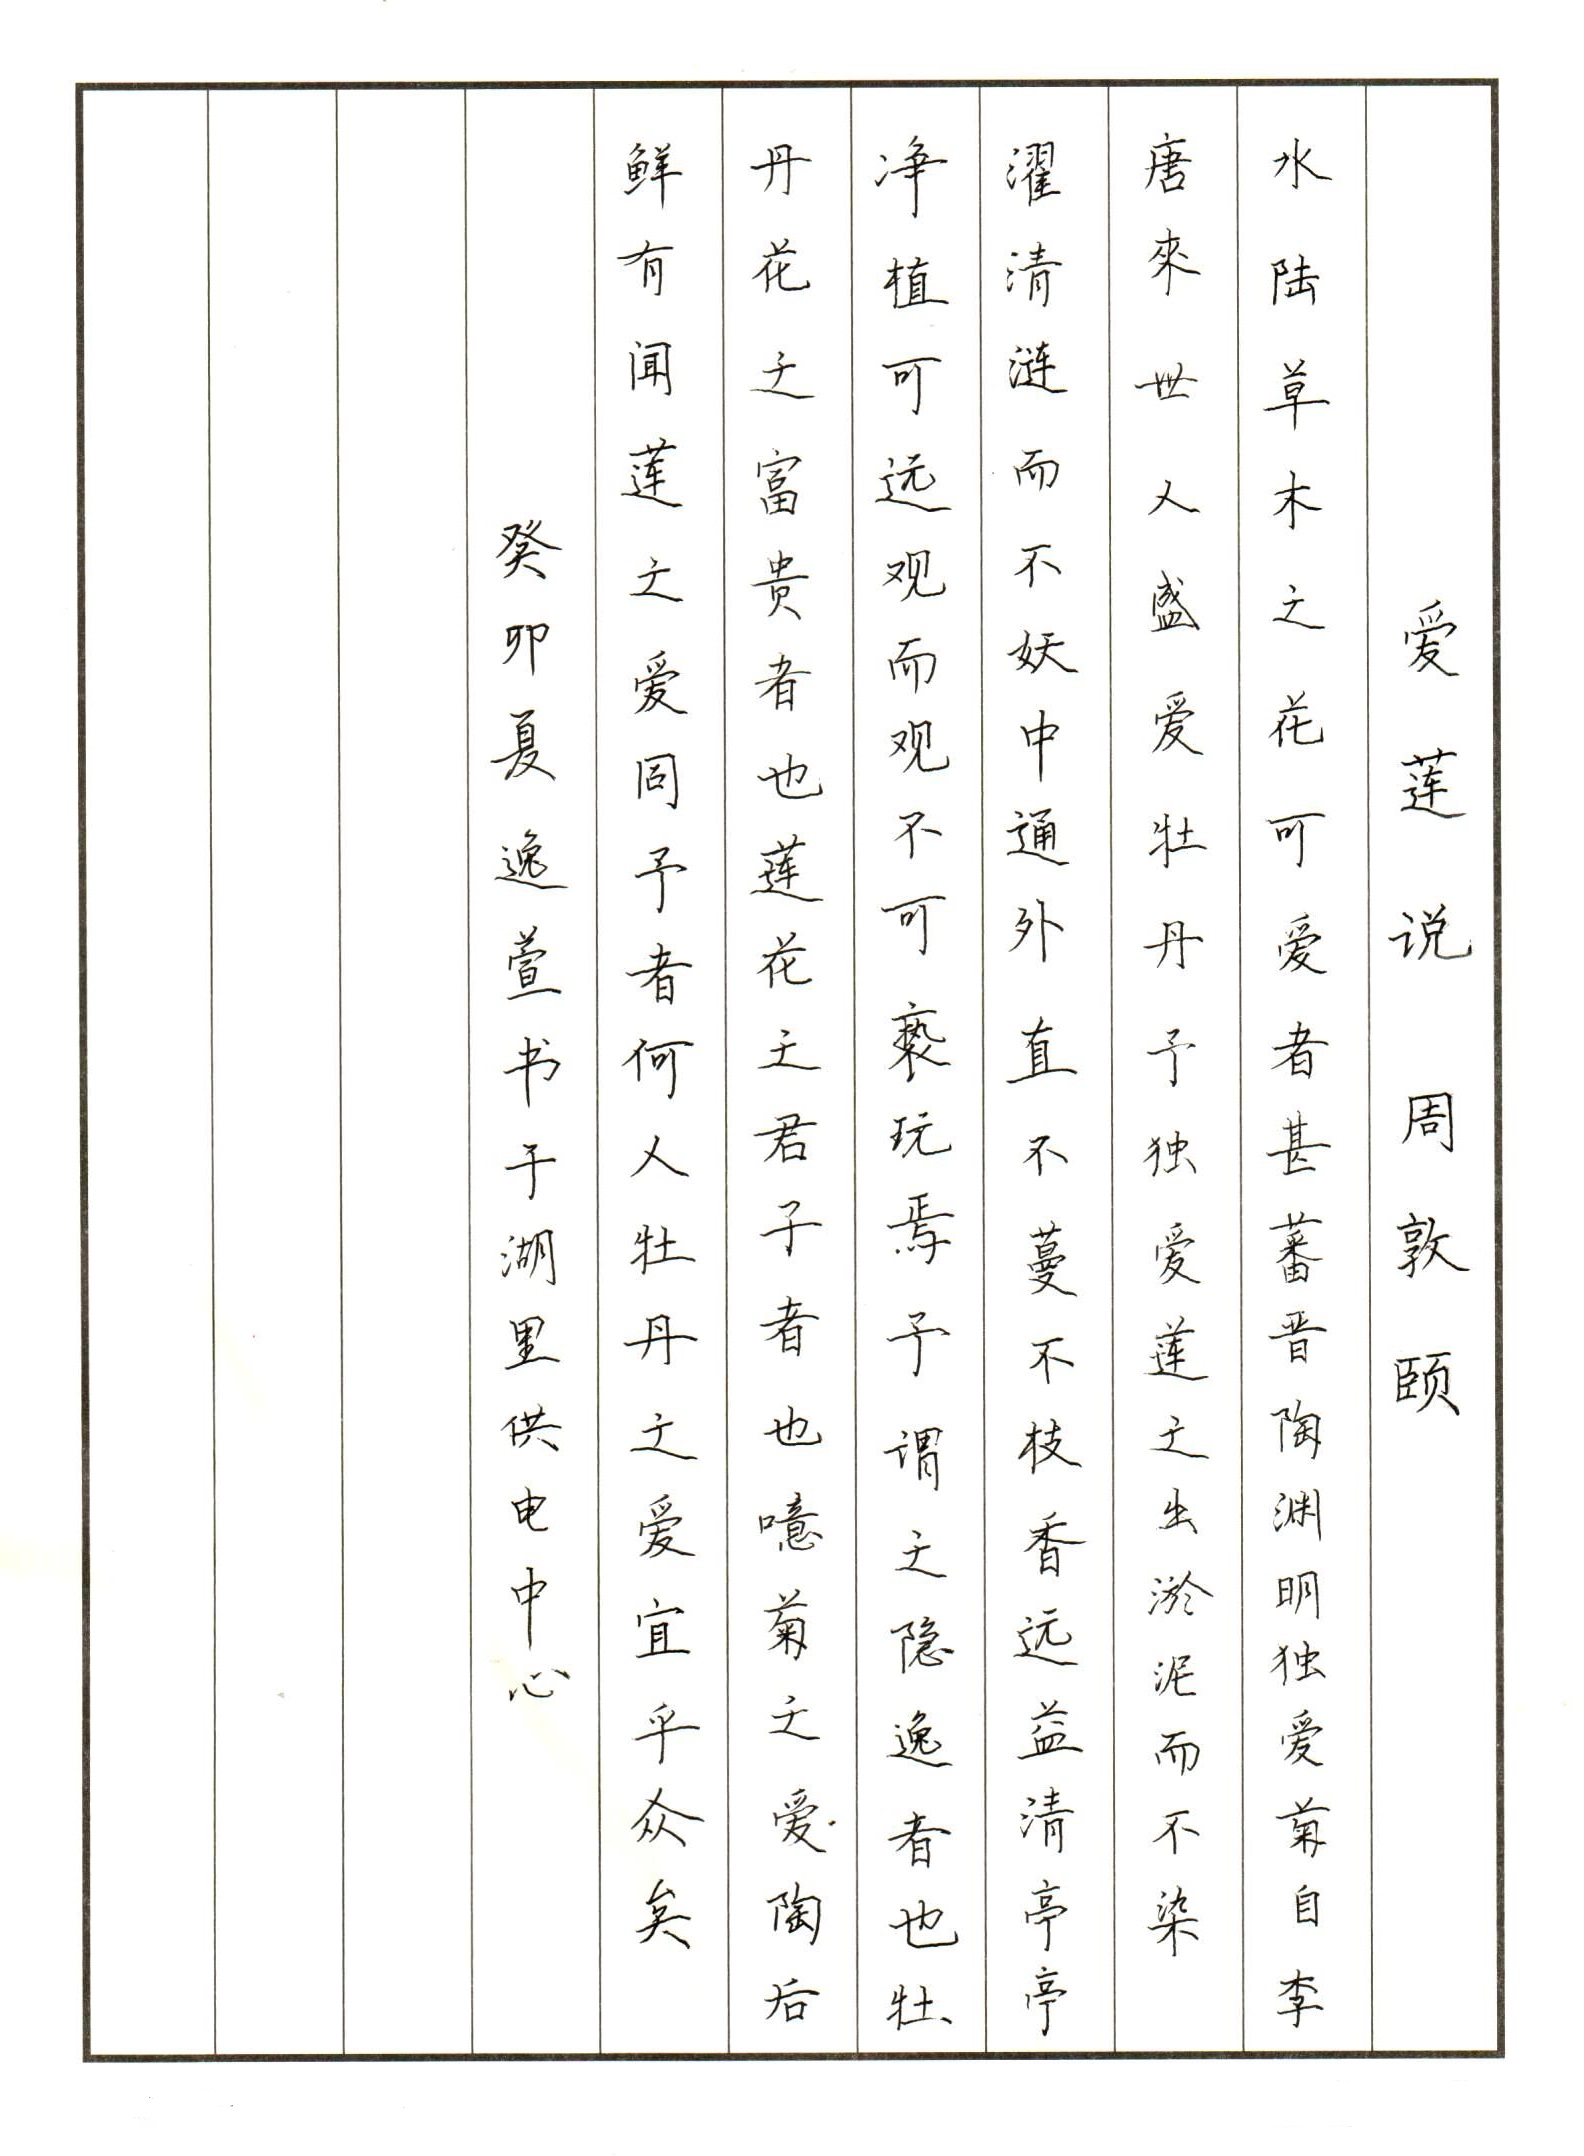 爱莲说 周敦颐
水陆草木之花可爱者甚蕃晋陶渊明独爱菊自李
唐來世人盛爱牡丹予独爱莲之出淤泥而不染
濯清涟而不妖中通外直不蔓不枝香远益清亭亭
净植可远观而观不可亵玩焉予谓之隐逸者也牡
丹花之富贵者也莲花之君子者也噫菊之爱陶后
鲜有闻莲之爱同予者何人牡丹之爱宜乎众矣
癸卯夏逸萱书于湖里供电中心